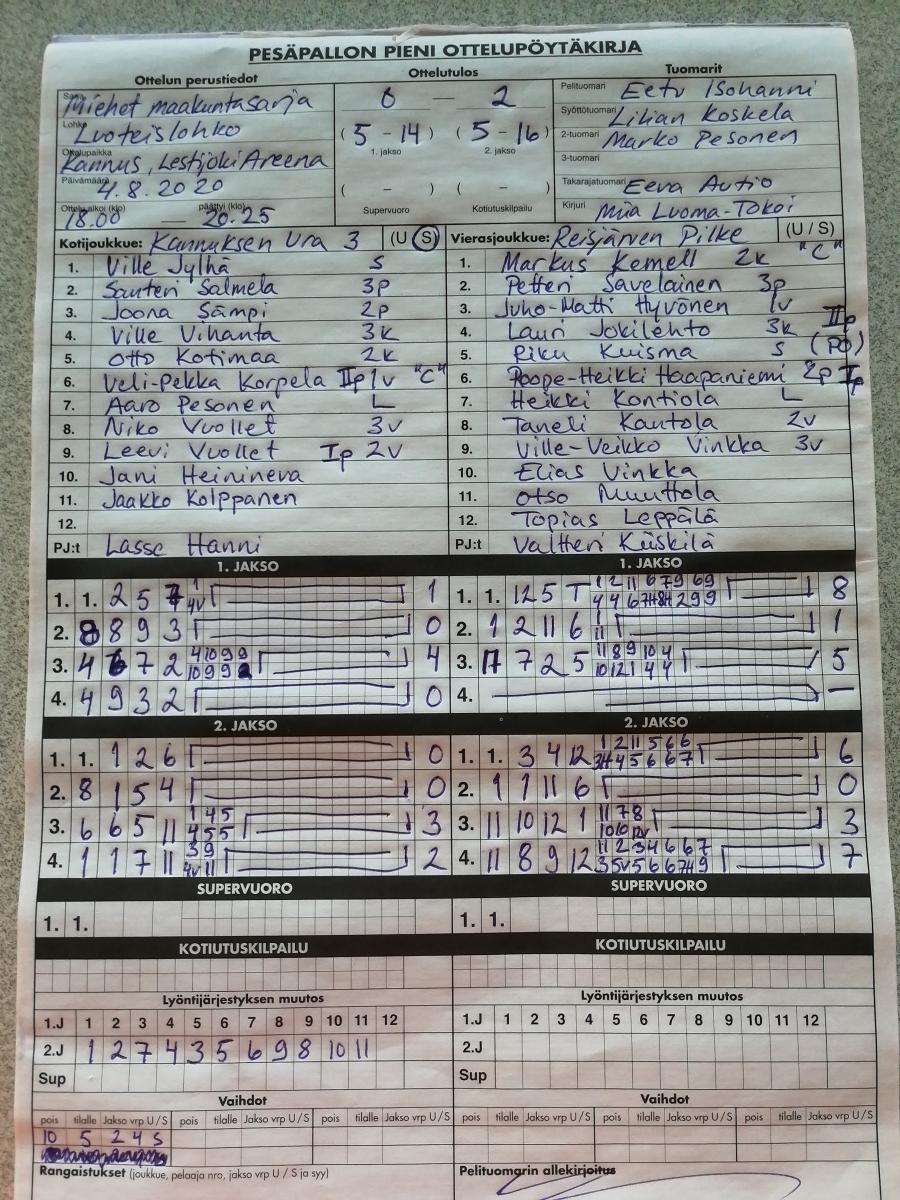 PESÄPALLON PIENI OTTELUPÖYTÄKIRJA
Ottelun perustiedot Ottelutulos Tuomarit
Sarja Miehet maakuntasarja
Lohko Luoteislohko
Ottelupaikka Kannus, Lestijoki Areena
Päivämäärä 4.8.2020
Ottelu alkoi (klo) 18.00 — päättyi (klo) 20.25
0 — 2
(5 - 14) (5 - 16)
1. jakso 2. jakso
( - ) ( - )
Supervuoro Kotiutuskilpailu
Pelituomari Eetu Isohanni
Syöttötuomari Lilian Koskela
2-tuomari Marko Pesonen
3-tuomari
Takarajatuomari Eeva Autio
Kirjuri Miia Luoma-Tokoi
Kotijoukkue: Kannuksen Ura 3 (U / S)
1. Ville Jylhä S
2. Santeri Salmela 3p
3. Joona Sämpi 2p
4. Ville Vihanta 3k
5. Otto Kotimaa 2k
6. Veli-Pekka Korpela IIp 1v "C"
7. Aaro Pesonen L
8. Niko Vuollet 3v
9. Leevi Vuollet Ip 2v
10. Jani Heinineva
11. Jaakko Kolppanen
12.
PJ:t Lasse Hanni
Vierasjoukkue: Reisjärven Pilke (U / S)
1. Markus Kemell 2k "C"
2. Petteri Savelainen 3p
3. Juho-Matti Hyvönen 1v
4. Lauri Jokilehto 3k IIp
5. Piku Kuisma S (PÖ)
6. Roope-Heikki Haapaniemi 2p Ip
7. Heikki Kontiola L
8. Taneli Kautola 2v
9. Ville-Veikko Vinkka 3v
10. Elias Vinkka
11. Otso Muuttola
12. Topias Leppälä
PJ:t Valtteri Kiiskilä
1. JAKSO
1. 1. 2 5 7 1 4v 1
2. 8 8 9 3 0
3. 4 6 7 2 4 10 9 9 10 9 9 2 4
4. 4 9 3 2 0
1. JAKSO
1. 1. 12 5 T 1 2 11 6 7 9 6 9 4 4 6 7H 8H 2 9 9 8
2. 1 2 11 6 1 11 1
3. 11 7 2 5 11 8 9 10 4 10 12 1 4 4 5
4. —
2. JAKSO
1. 1. 1 2 6 0
2. 8 1 5 4 0
3. 6 6 5 11 1 4 5 4 5 5 3
4. 1 1 7 11 3 9 4v 11 2
2. JAKSO
1. 1. 3 4 12 1 2 11 5 6 6 3H 4 5 6 6 7 6
2. 1 1 11 6 0
3. 11 10 12 1 11 7 8 10 10 12v 3
4. 11 8 9 12 11 2 3 4 6 6 7 3 5v 5 6 6 7H 9 7
SUPERVUORO SUPERVUORO
1. 1. 1. 1.
KOTIUTUSKILPAILU KOTIUTUSKILPAILU
Lyöntijärjestyksen muutos Lyöntijärjestyksen muutos
1.J 1 2 3 4 5 6 7 8 9 10 11 12 1.J 1 2 3 4 5 6 7 8 9 10 11 12
2.J 1 2 7 4 3 5 6 9 8 10 11 2.J
Sup Sup
Vaihdot Vaihdot
pois tilalle Jakso vrp U / S pois tilalle Jakso vrp U / S pois tilalle Jakso vrp U / S pois tilalle Jakso vrp U / S pois tilalle Jakso vrp U / S pois tilalle Jakso vrp U / S
10 5 2 4 S
Rangaistukset (joukkue, pelaaja nro, jakso vrp U / S ja syy) Pelituomarin allekirjoitus